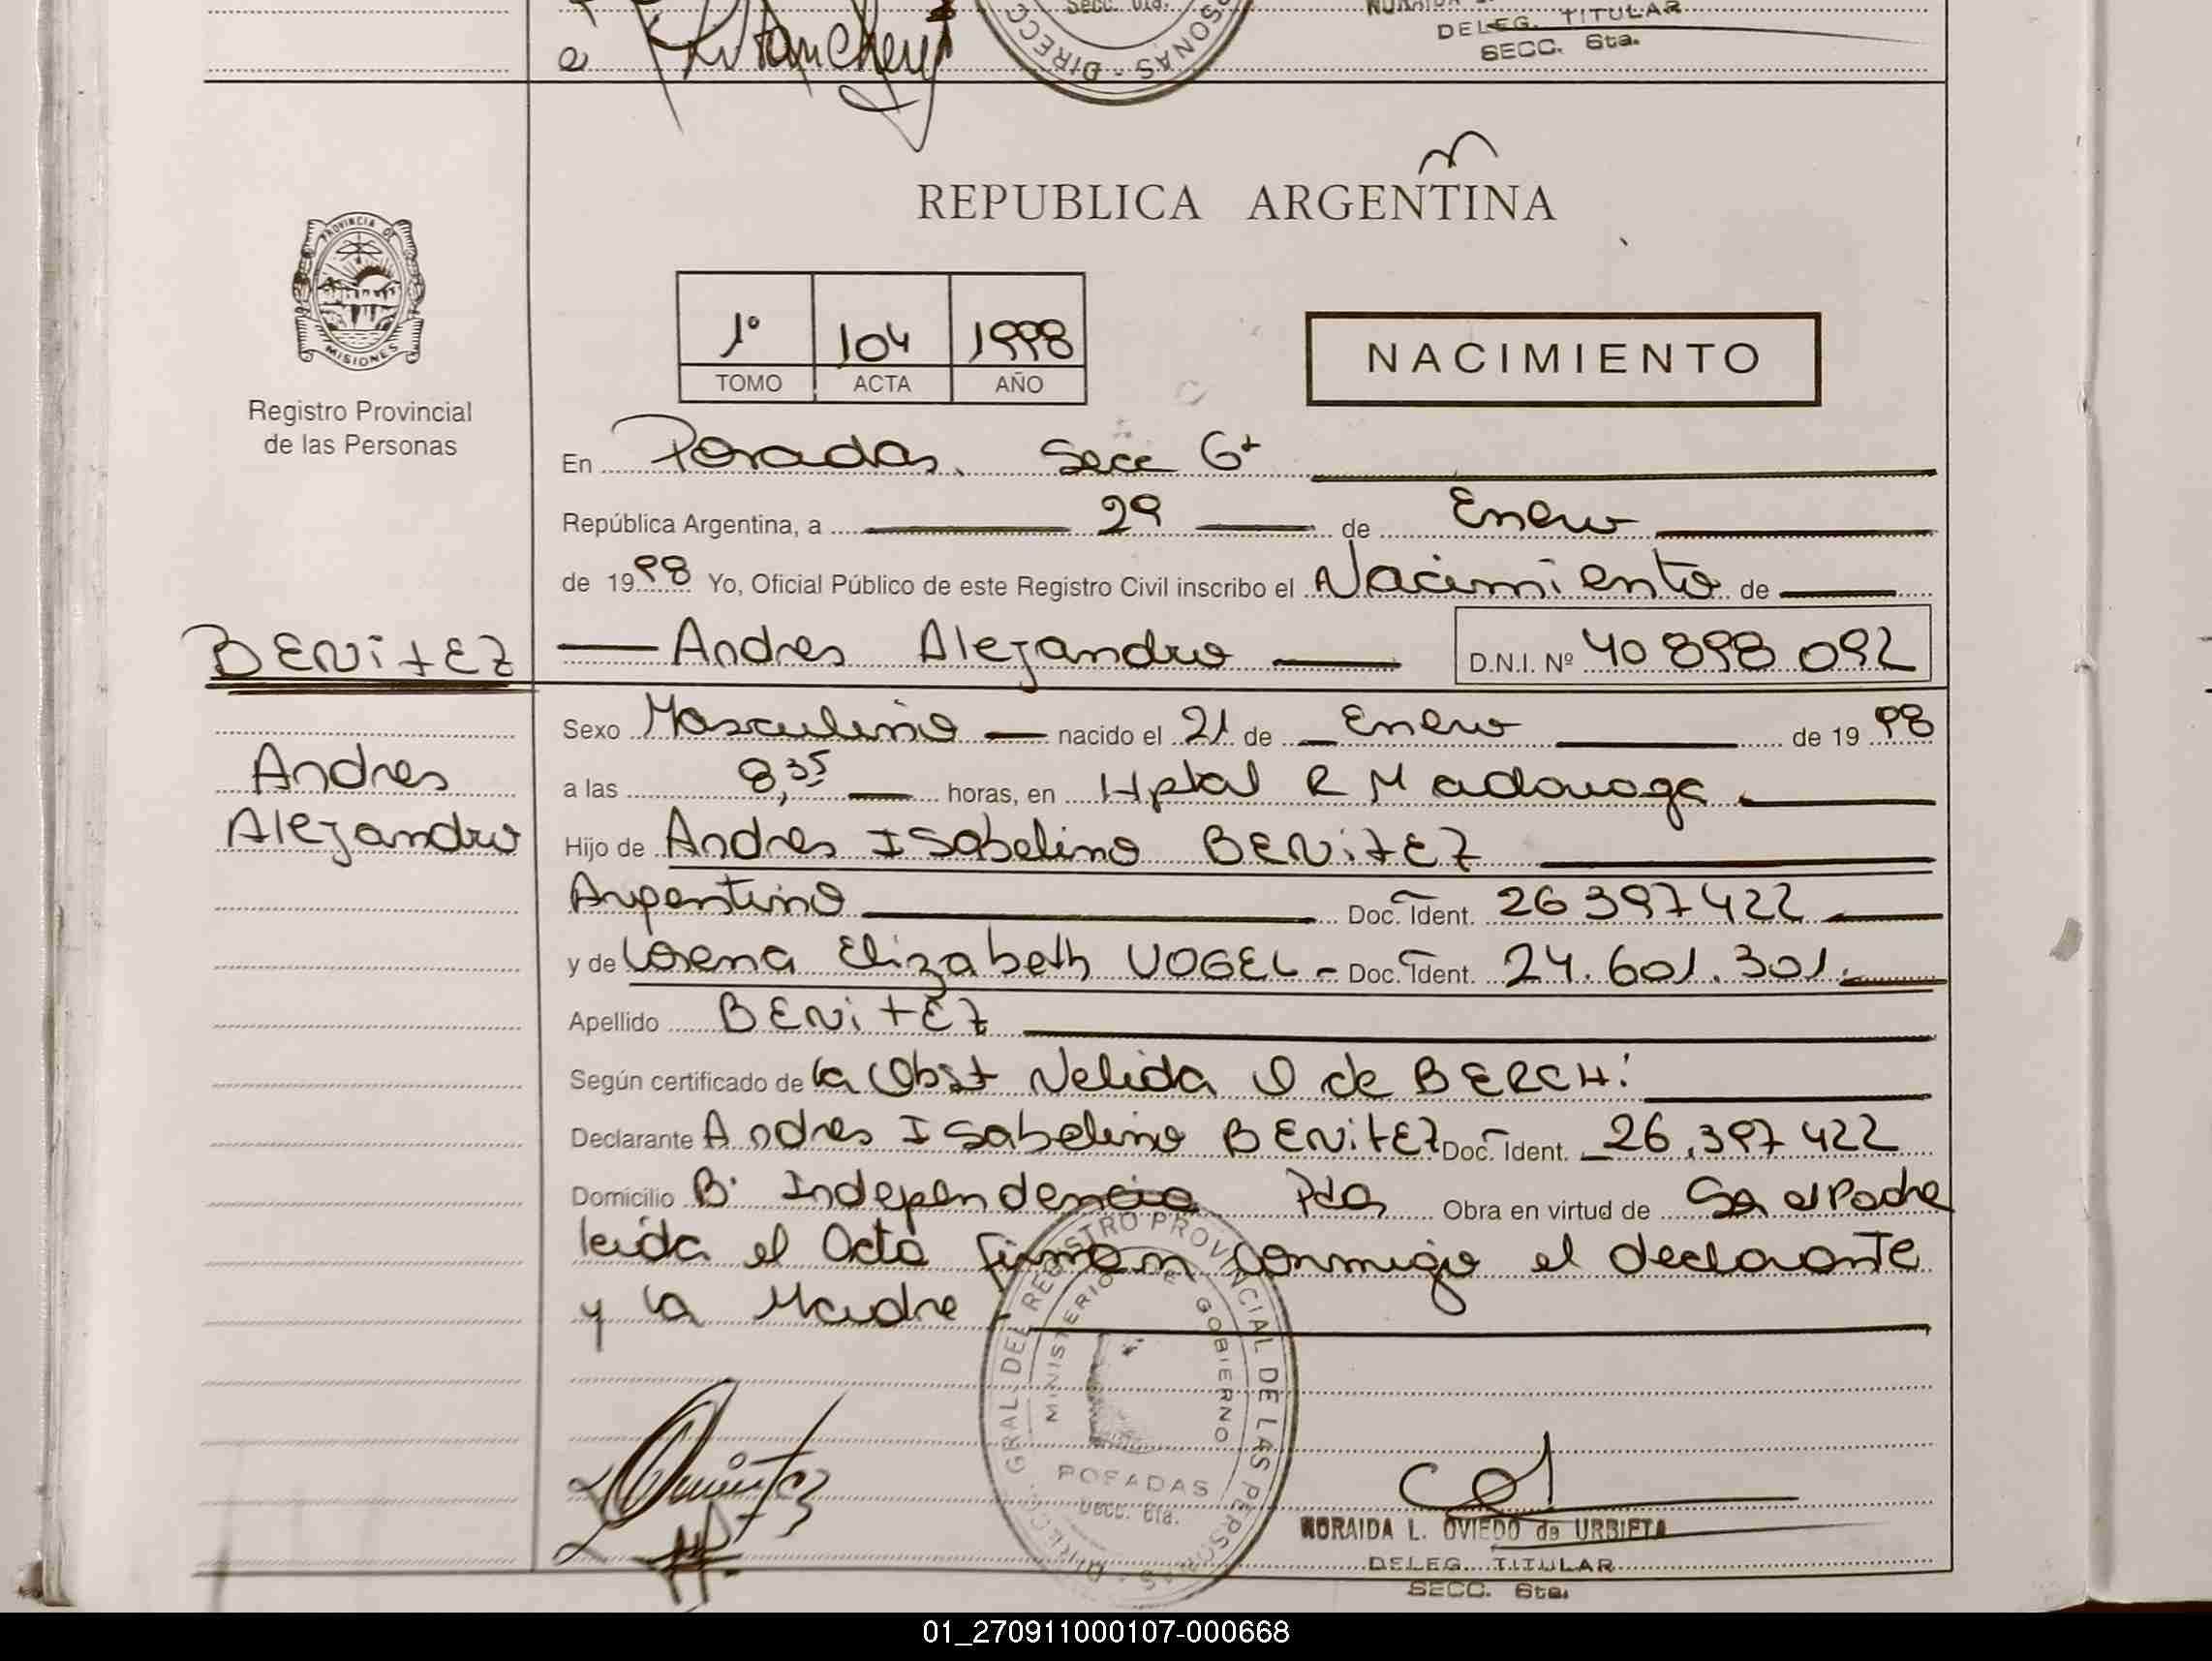 DELEG. TITULAR
SECC. 6ta.
REPUBLICA ARGENTINA
PROVINCIA DE
MISIONES
1º 104 1998
TOMO ACTA AÑO
NACIMIENTO
Registro Provincial
de las Personas
En Posadas. Secc 6ª
República Argentina, a 29 de Enero
de 1998 Yo, Oficial Público de este Registro Civil inscribo el Nacimiento de
BENITEZ Andres Alejandro D.N.I. Nº 40 898 092
Sexo Masculino nacido el 21 de Enero de 1998
Andres
a las 8,35 horas, en Hptal R Madariaga
Alejandro
Hijo de Andres Isabelino BENITEZ
Argentino Doc. Ident. 26 397 422
y de Lorena Elizabeth VOGEL - Doc. Ident. 24.601.301.
Apellido BENITEZ
Según certificado de la Obst Nelida O de BERCHI
Declarante Andres Isabelino BENITEZ Doc. Ident. 26.397 422
Domicilio Bº Independencia Pdas Obra en virtud de Ser el Padre
leida el Acta firman conmigo el declarante
y la Madre
DIRECC. GRAL. DEL REGISTRO PROVINCIAL DE LAS PERSONAS
MINISTERIO DE GOBIERNO
POSADAS
Secc. 6ta.
NORAIDA L. OVIEDO de URBIETA
DELEG. TITULAR
SECC. 6ta.
01_270911000107-000668